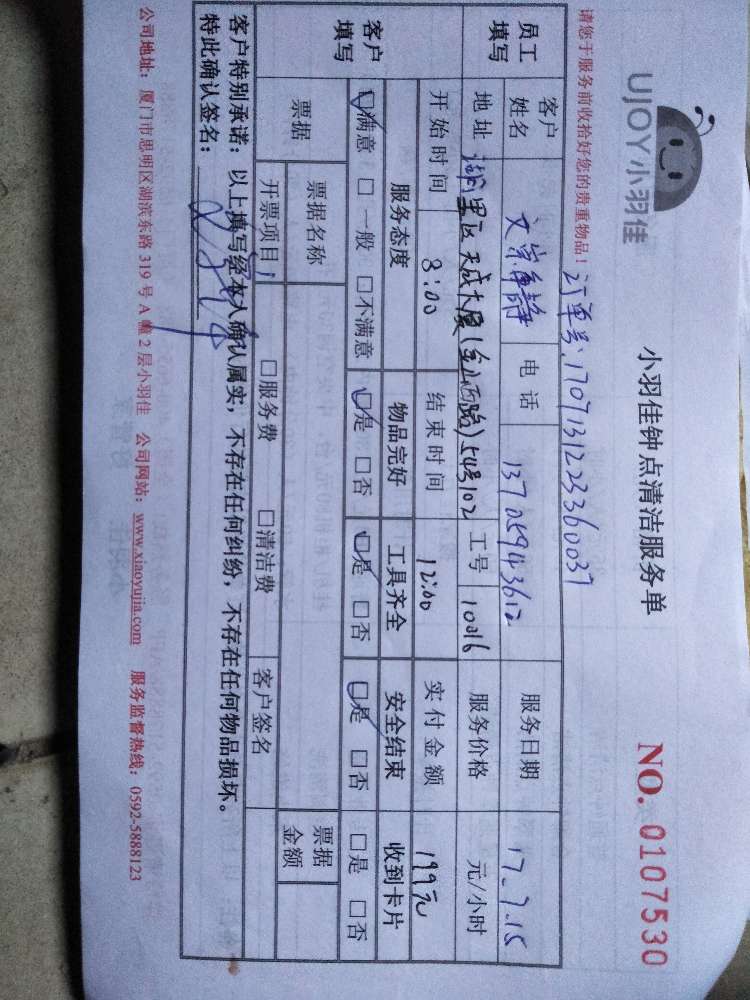 UJOY小羽佳
小羽佳钟点清洁服务单
NO. 0107530
请您于服务前收拾好您的贵重物品!
订单号:1707131223360037
员工填写 客户姓名 电话 13705943612 服务日期 17.7.15
地址 湖里区天成大厦(金山西路)54号102 工号 10016 服务价格 元/小时
开始时间 8:00 结束时间 12:00 实付金额 199元
客户填写 服务态度 物品完好 工具齐全 安全结束 收到卡片
☑满意 □一般 □不满意 ☑是 □否 ☑是 □否 ☑是 □否 □是 □否
票据 票据名称 票据金额
开票项目 □服务费 □清洁费 客户签名
客户特别承诺:以上填写经本人确认属实,不存在任何纠纷,不存在任何物品损坏。
特此确认签名:
公司地址:厦门市思明区湖滨东路319号A幢2层小羽佳 公司网站:www.xiaoyujia.com 服务监督热线:0592-5888123